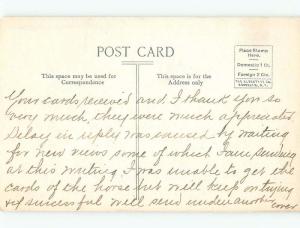 POST CARD
Place Stamp
Here.
Domestic 1 Ct.
Foreign 2 Cts.
This space may be used for
Correspondence
This space is for the
Address only
Your cards received and I thank you so
very much, they were much appreciated
Delay in reply was caused by waiting
for new views some of which I am sending
at this writing I was unable to get the
cards of the horse but will keep on trying
& if successful will send under another
cover